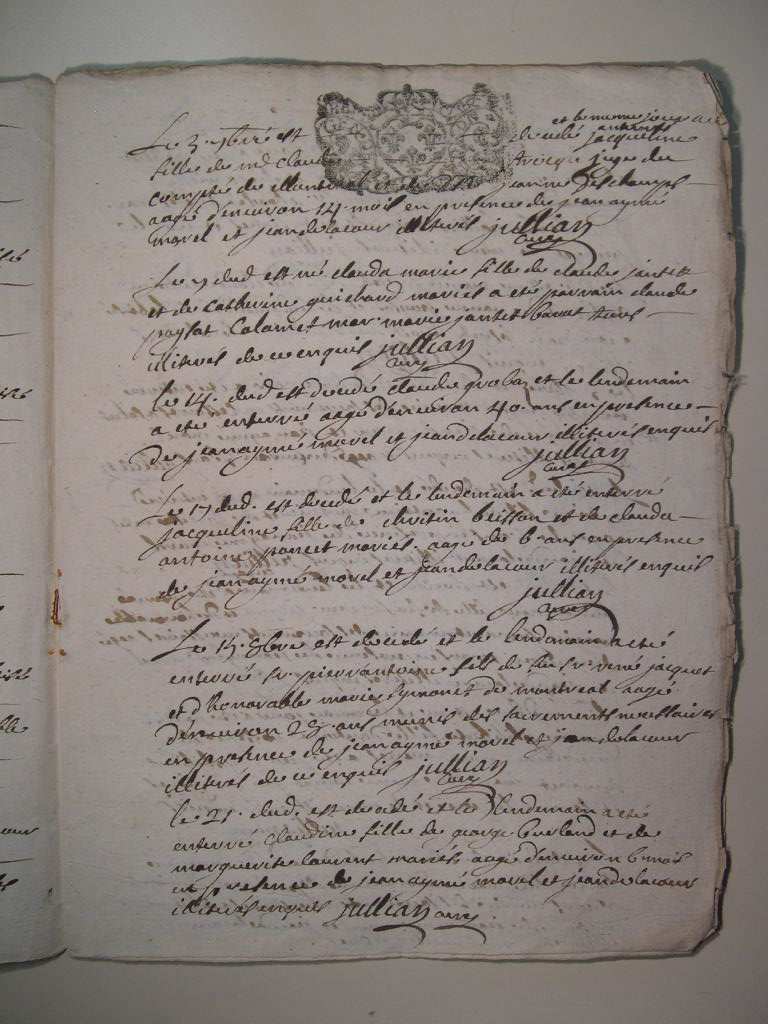 et le meme jour a été
Le 3. 7bre est decedé enterré jacqueline
fille de me Claude avocat juge du
compté de Montreal et de jeanne Deschamps
aagé d'environ 14. mois en presence de jean aymé
morel et jean delacour illiterés jullian
curé
Le 9 dud est né clauda marie fille de claude jantet
et de Catherine guichard mariés a été parrain claude
mar. marie jantet tous
illiterés de ce enquis jullian
curé
Le 14. dud est decedé claude grobaz et le lendemain
a été enterré aagé d'environ 40. ans en presence
de jean aymé morel et jean delacour illiterés enquis
jullian
curé
Le 17 dud. est decedé et le lendemain a été enterré
jacqueline fille de beisson et de clauda
antoine poncet mariés. aagé de 6. ans en presence
de jean aymé morel et jean delacour illiterés enquis
jullian
curé
Le 15. 8bre est decedé et le lendemain a été
enterré sr. pierre antoine fils de feu sr. rené jacquet
et d'honorable marie de montreal aagé
d'environ 28. ans munis des sacrements necessaires
en presence de jean aymé morel et jean delacour
illiterés de ce enquis jullian
curé
le 21. dud. est decedé et le lendemain a été
enterré claudine fille de george et de
marguerite laurent mariés aagé d'environ 6 mois
en presence de jean aymé morel et jean delacour
illiterés enquis jullian curé